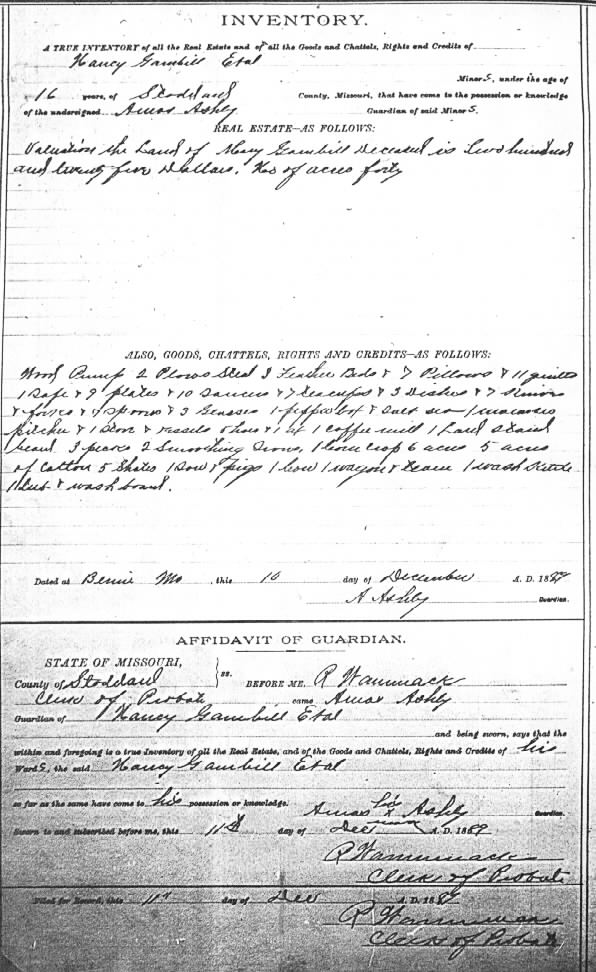 INVENTORY.
A TRUE INVENTORY of all the Real Estate and of all the Goods and Chattels, Rights and Credits of
Nancy Gambill Etal
Minors, under the age of
16 years, of Stoddard County, Missouri, that have come to the possession or knowledge
of the undersigned Amos Ashby Guardian of said Minors.
REAL ESTATE—AS FOLLOWS:
Valuation the Land of Mary Gambill Deceased is Two hundred
and twenty five Dollars. No of acres forty
ALSO, GOODS, CHATTELS, RIGHTS AND CREDITS—AS FOLLOWS:
Wood Pump 2 Plows Sted 3 Feather Beds & 7 Pillows & 11 quilts
1 Safe & 9 plates & 10 Saucers & 7 teacups & 3 Dishes & 7 Knives
& forks & 9 Spoons & 3 Glasses 1 pepper box & Salt 1 molasses
pitcher & 1 Stove & vessels 1 coffee mill 1 Lard Stand
3 2 Smoothing Irons, 1 corn crop 6 acres 5 acres
of Cotton 5 Shoats 1 Sow & pigs 1 cow 1 wagon & team 1 wash Kettle
1 tub & wash board.
Dated at Bernie Mo, this 10 day of December A. D. 1889
A Ashby Guardian.
AFFIDAVIT OF GUARDIAN.
STATE OF MISSOURI,
County of Stoddard ss. BEFORE ME, R Wammack
Clerk of Probate came Amos Ashby
Guardian of Nancy Gambill Etal
and being sworn, says that the
within and foregoing is a true Inventory of all the Real Estate, and of the Goods and Chattels, Rights and Credits of his
Wards, the said Nancy Gambill Etal
so far as the same have come to his possession or knowledge.
Amos his X mark Ashby Guardian.
Sworn to and subscribed before me, this 11th day of Dec A. D. 1889
R Wammack
Clerk of Probate
Filed for Record, this 11th day of Dec A. D. 1889
R Wammack
Clerk of Probate